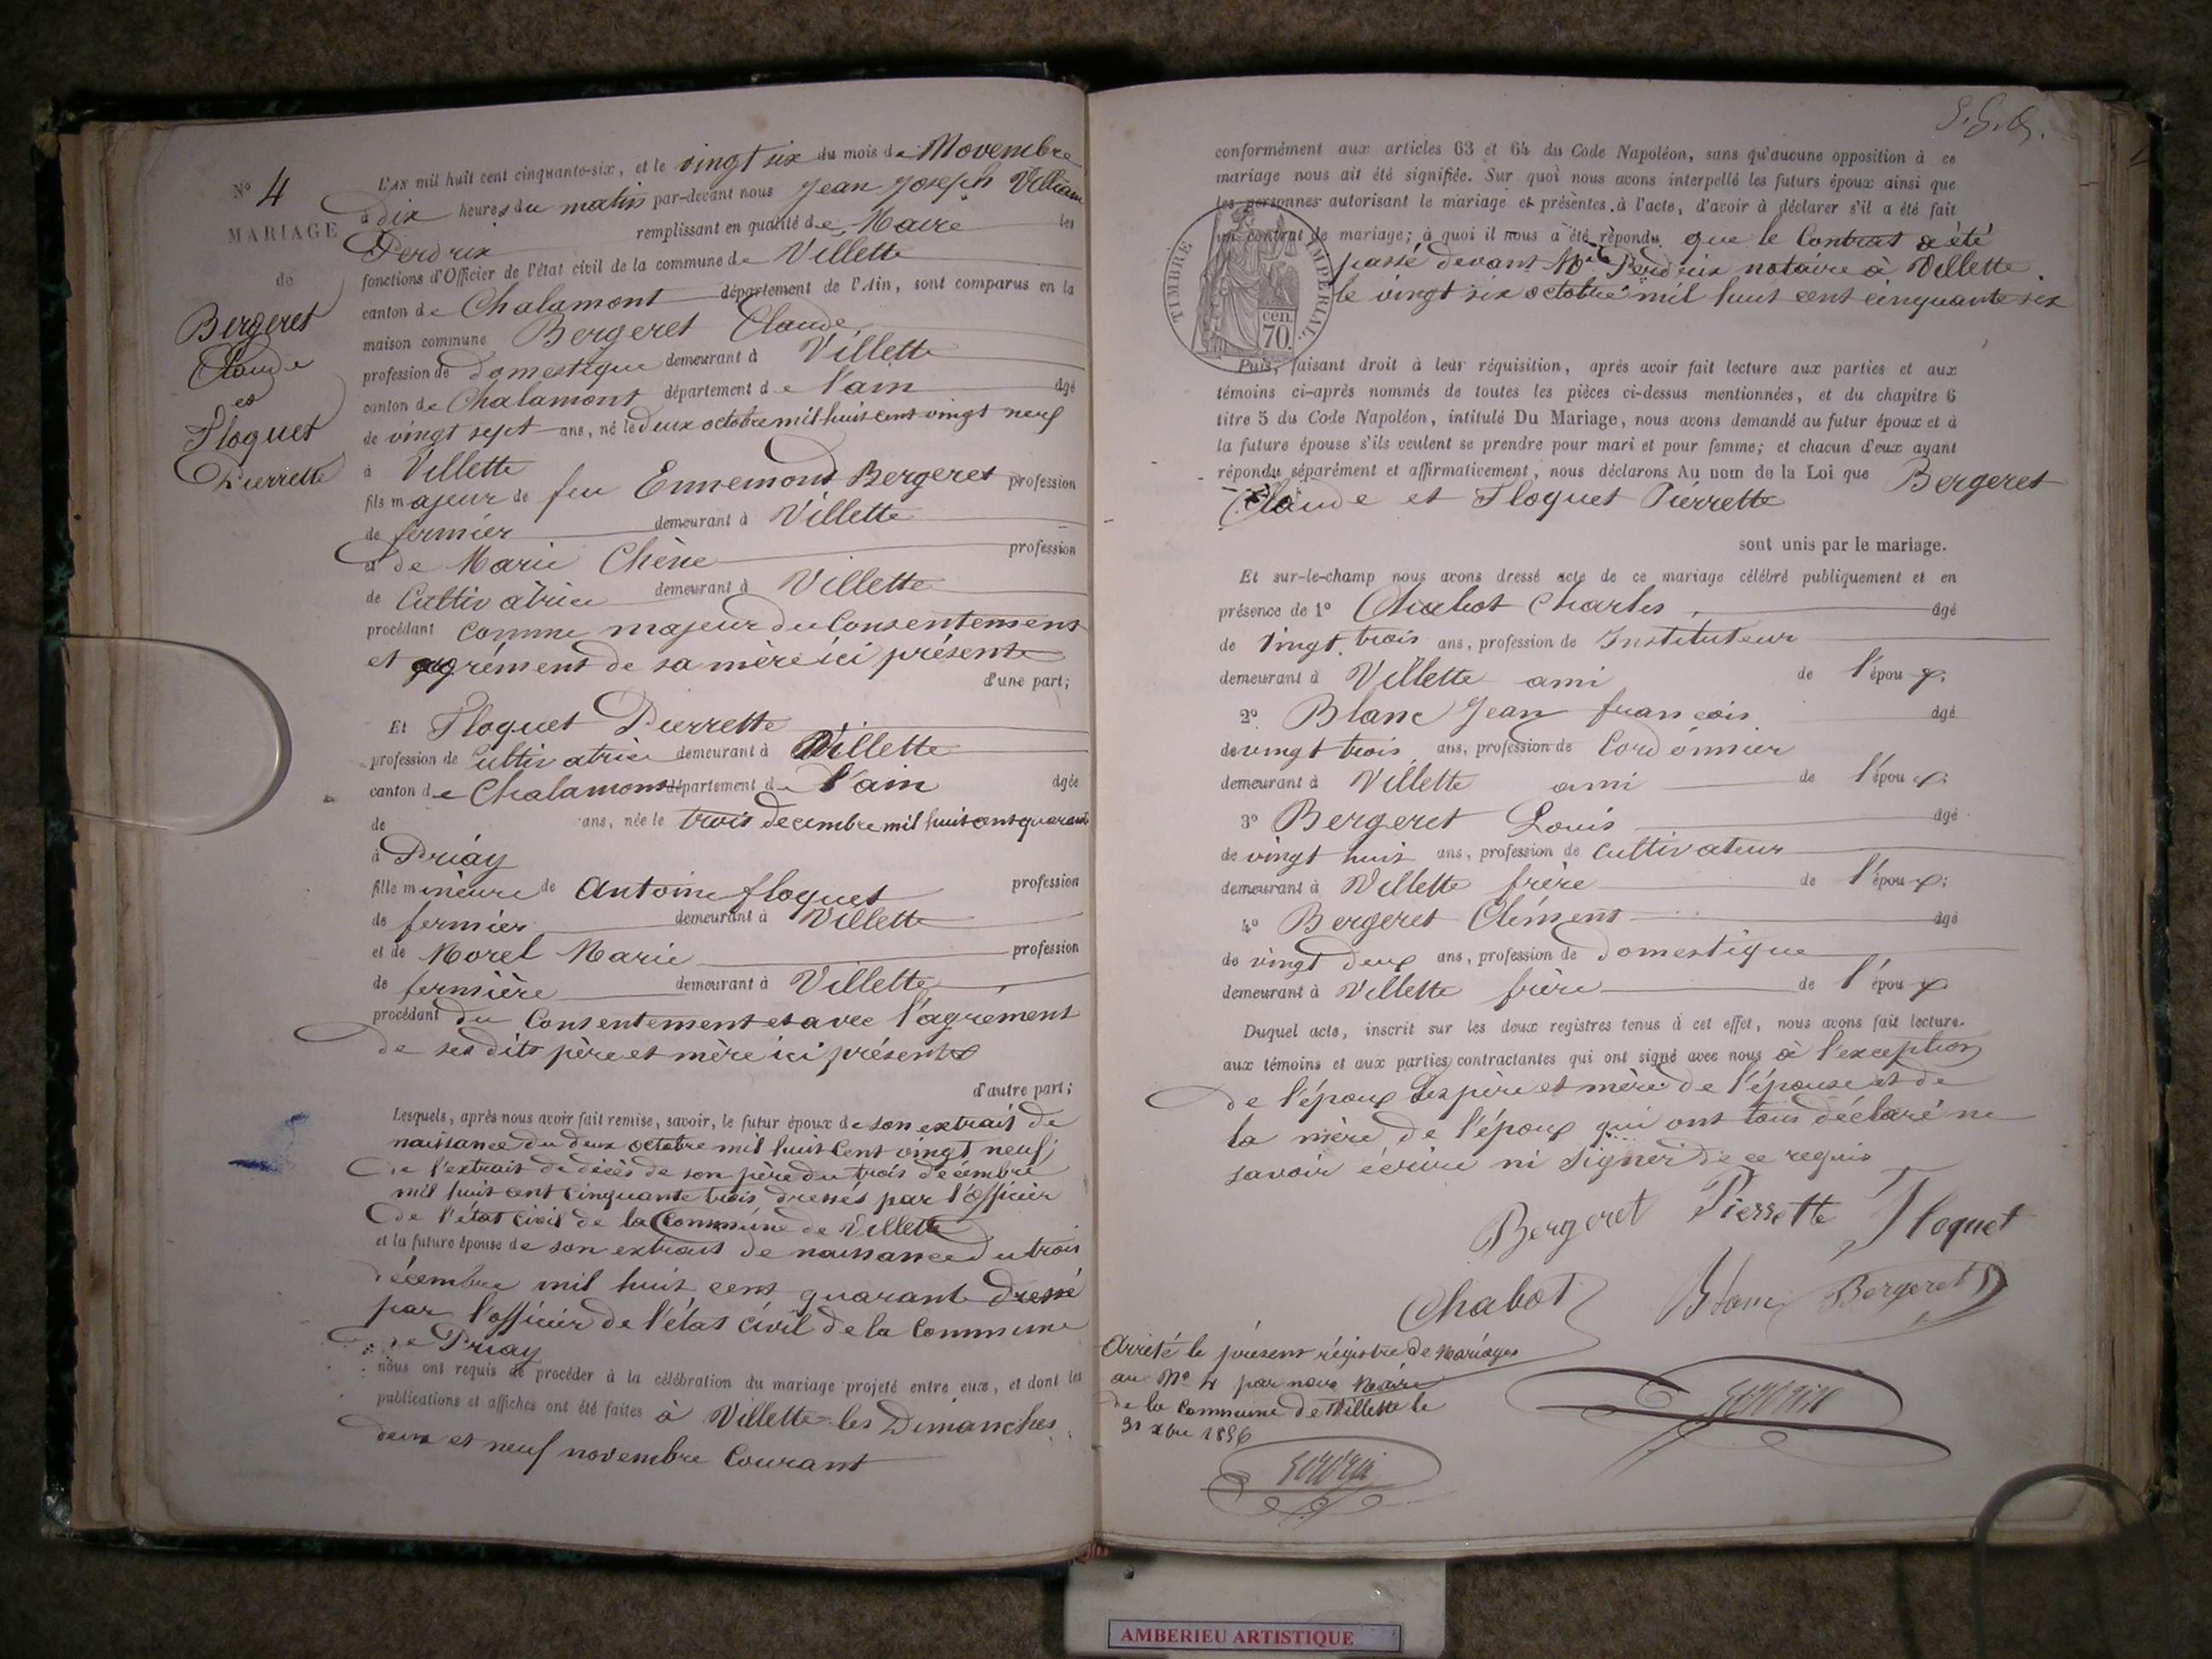 N° 4
MARIAGE
de
Bergeret
Claude
et
Floquet
Pierrette
L'AN mil huit cent cinquante-six, et le vingt six du mois de Novembre
à dix heures du matin par-devant nous Jean Joseph William
Perdrix remplissant en qualité de Maire les
fonctions d'Officier de l'état civil de la commune de Villette
canton de Chalamont département de l'Ain, sont comparus en la
maison commune Bergeret Claude
profession de domestique demeurant à Villette
canton de Chalamont département de l'ain âgé
de vingt sept ans, né le deux octobre mil huit cent vingt neuf
à Villette
fils majeur de feu Ennemond Bergeret profession
de fermier demeurant à Villette
et de Marie Chêne profession
de Cultivatrice demeurant à Villette
procédant comme majeur du Consentement
et agrément de sa mère ici présente
d'une part;
Et Floquet Pierrette
profession de Cultivatrice demeurant à Villette
canton de Chalamont département de l'ain âgée
de ans, née le trois decembre mil huit cent quarante
à Priay
fille mineure de Antoine floquet profession
de fermier demeurant à Villette
et de Morel Marie profession
de fermière demeurant à Villette
procédant du Consentement et avec l'agrément
de ses dits père et mère ici présents
d'autre part;
Lesquels, après nous avoir fait remise, savoir, le futur époux de son extrait de
naissance du deux octobre mil huit Cent vingt neuf;
de l'extrait de décès de son père du trois décembre
mil huit cent cinquante trois dressés par l'officier
de l'état civil de la Commune de Villette
et la future épouse de son extrait de naissance du trois
décembre mil huit cent quarante dressé
par l'officier de l'état civil de la Commune
de Priay
nous ont requis de procéder à la célébration du mariage projeté entre eux, et dont les
publications et affiches ont été faites à Villette les Dimanches
deux et neuf novembre Courant
conformément aux articles 63 et 64 du Code Napoléon, sans qu'aucune opposition à ce
mariage nous ait été signifiée. Sur quoi nous avons interpellé les futurs époux ainsi que
les personnes autorisant le mariage et présentes à l'acte, d'avoir à déclarer s'il a été fait
un contrat de mariage; à quoi il nous a été répondu que le Contrat a été
passé devant Me Perdrix notaire à Villette
le vingt six octobre mil huit cent cinquante six
TIMBRE IMPÉRIAL
cen.
70.
Puis, faisant droit à leur réquisition, après avoir fait lecture aux parties et aux
témoins ci-après nommés de toutes les pièces ci-dessus mentionnées, et du chapitre 6
titre 5 du Code Napoléon, intitulé Du Mariage, nous avons demandé au futur époux et à
la future épouse s'ils veulent se prendre pour mari et pour femme; et chacun d'eux ayant
répondu séparément et affirmativement, nous déclarons Au nom de la Loi que Bergeret
Claude et Floquet Pierrette
sont unis par le mariage.
Et sur-le-champ nous avons dressé acte de ce mariage célébré publiquement et en
présence de 1° Chabot Charles, âgé
de vingt trois ans, profession de Instituteur
demeurant à Villette ami de l'époux;
2° Blanc Jean françois âgé
de vingt trois ans, profession de Cordonnier
demeurant à Villette ami de l'époux;
3° Bergeret Louis âgé
de vingt huit ans, profession de Cultivateur
demeurant à Villette frère de l'époux;
4° Bergeret Clément âgé
de vingt deux ans, profession de domestique
demeurant à Villette frère de l'époux
Duquel acte, inscrit sur les deux registres tenus à cet effet, nous avons fait lecture
aux témoins et aux parties contractantes qui ont signé avec nous à l'exception
de l'époux des père et mère de l'épouse et de
la mère de l'époux qui ont tous déclaré ne
savoir écrire ni signer de ce requis
Bergeret Pierrette Floquet
Chabot Blanc Bergeret
Arrêté le présent régistre de Mariages
au No 4 par nous Maire
de la Commune de Villette le
31 xbre 1856
Perdrix
Perdrix
AMBERIEU ARTISTIQUE